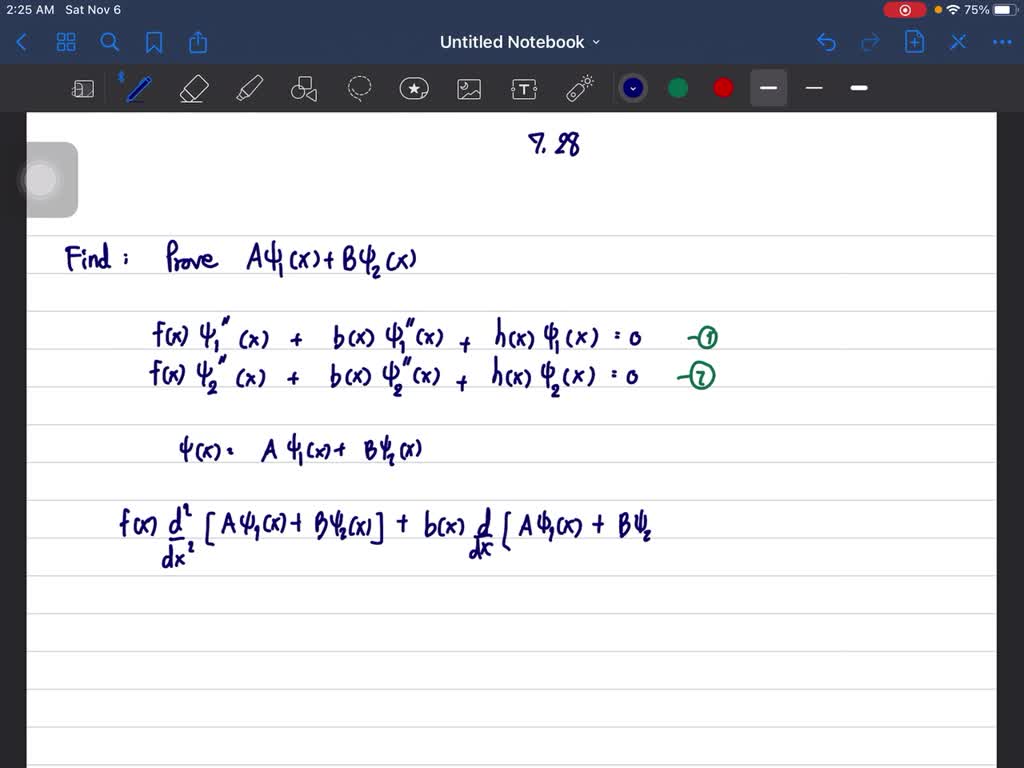 2:25 AM Sat Nov 6 75%
Untitled Notebook
7.28
Find : Prove Aψ₁(x) + Bψ₂(x)
f(x) ψ₁''(x) + b(x) ψ₁''(x) + h(x) ψ₁(x) = 0 -①
f(x) ψ₂''(x) + b(x) ψ₂''(x) + h(x) ψ₂(x) = 0 -②
ψ(x) = Aψ₁(x) + Bψ₂(x)
f(x) d²/dx² [Aψ₁(x) + Bψ₂(x)] + b(x) d/dx [Aψ₁(x) + Bψ₂